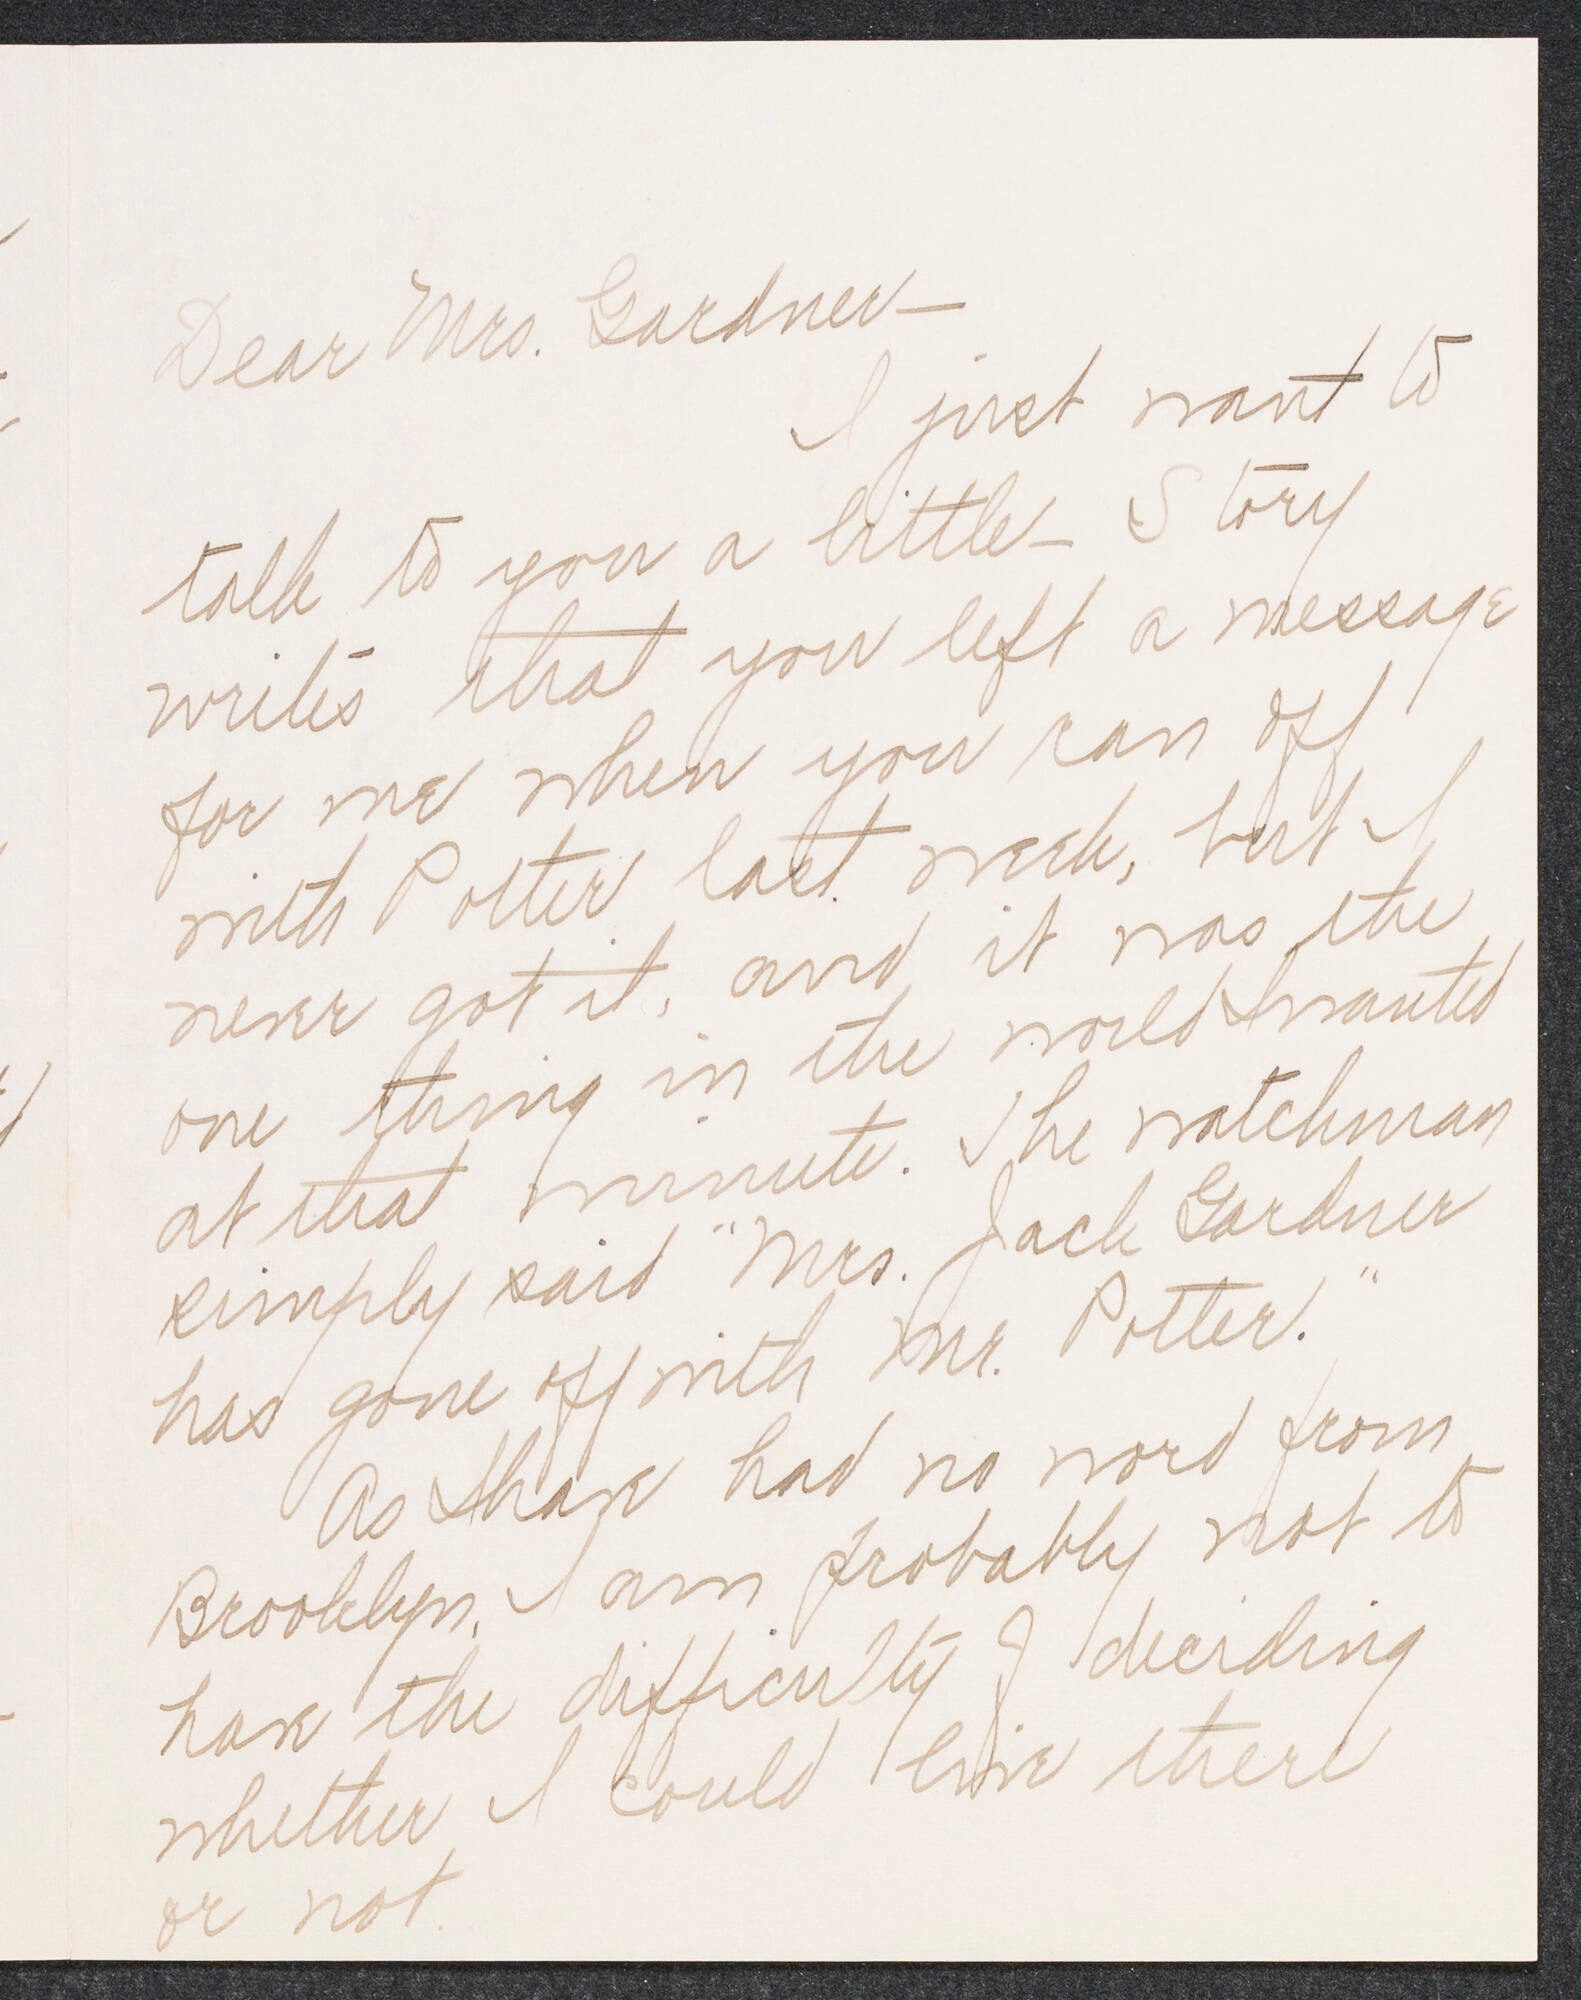 Dear Mrs. Gardner—
I just want to
talk to you a little— Story
writes that you left a message
for me when you ran off
with Potter last week, but I
never got it, and it was the
one thing in the world I wanted
at that minute. The watchman
simply said "Mrs. Jack Gardner
has gone off with Mr. Potter."
As I have had no word from
Brooklyn, I am probably not to
have the difficulty of deciding
whether I could live there
or not.